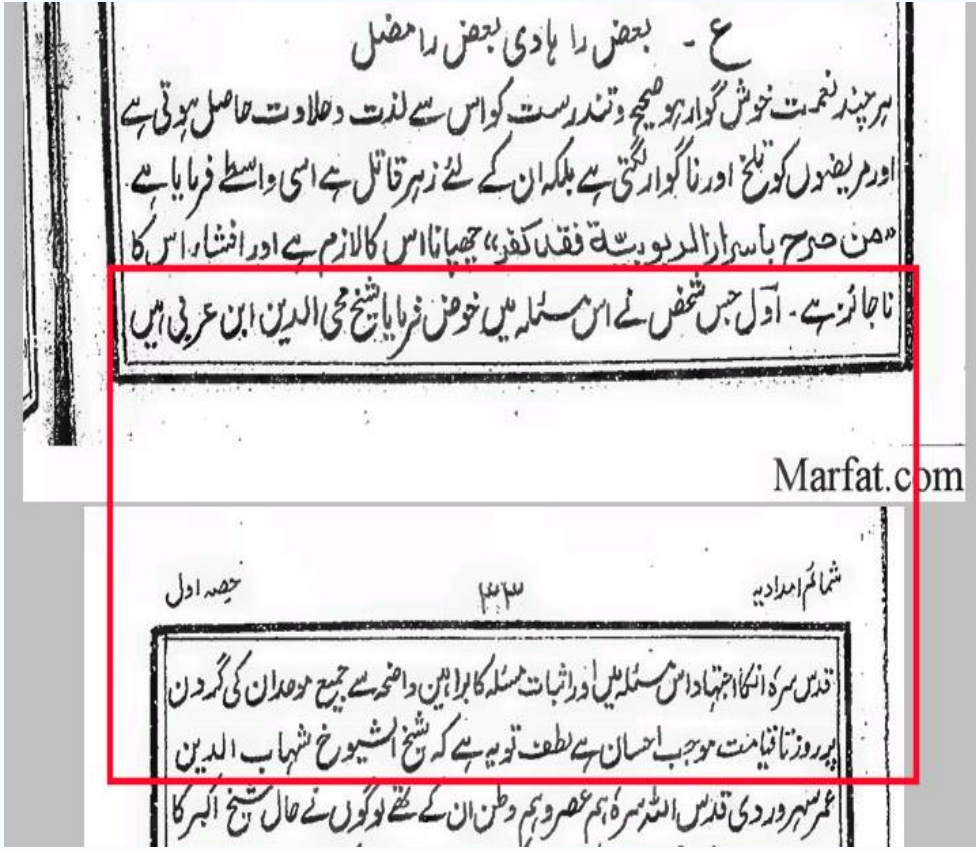 ع - بعض را ہادی بعض را مضل
ہر چند نعمت خوش گوار ہو صحیح و تندرست کو اس سے لذت و حلاوت حاصل ہوتی ہے
اور مریضوں کو تلخ اور ناگوار لگتی ہے بلکہ ان کے لئے زہر قاتل ہے اسی واسطے فرمایا ہے
"من صرح باسرار الربوبیّة فقد کفر" چھپانا اس کا لازم ہے اور افشاء اس کا
ناجائز ہے۔ اول جس شخص نے اس مسئلہ میں خوض فرمایا شیخ محی الدین ابن عربی ہیں
Marfat.com
شمائم امدادیہ ۳۳ حصہ اول
قدس سرہ انکا اجتہاد اس مسئلہ میں اور اثبات مسئلہ کا براہین واضحہ سے جمیع موحدان کی گردن
پر روز تا قیامت موجب احسان ہے لطف تو یہ ہے کہ شیخ الشیوخ شہاب الدین
عمر سہروردی قدس اللہ سرہ ہم عصر و ہم وطن ان کے تھے لوگوں نے حال شیخ اکبر کا